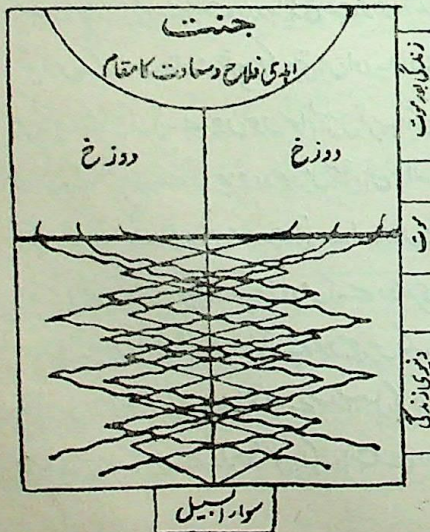 جنت
ابدی فلاح وسعادت کا مقام
دوزخ
دوزخ
زندگی بعد موت
موت
دنیوی زندگی
سوار السبیل